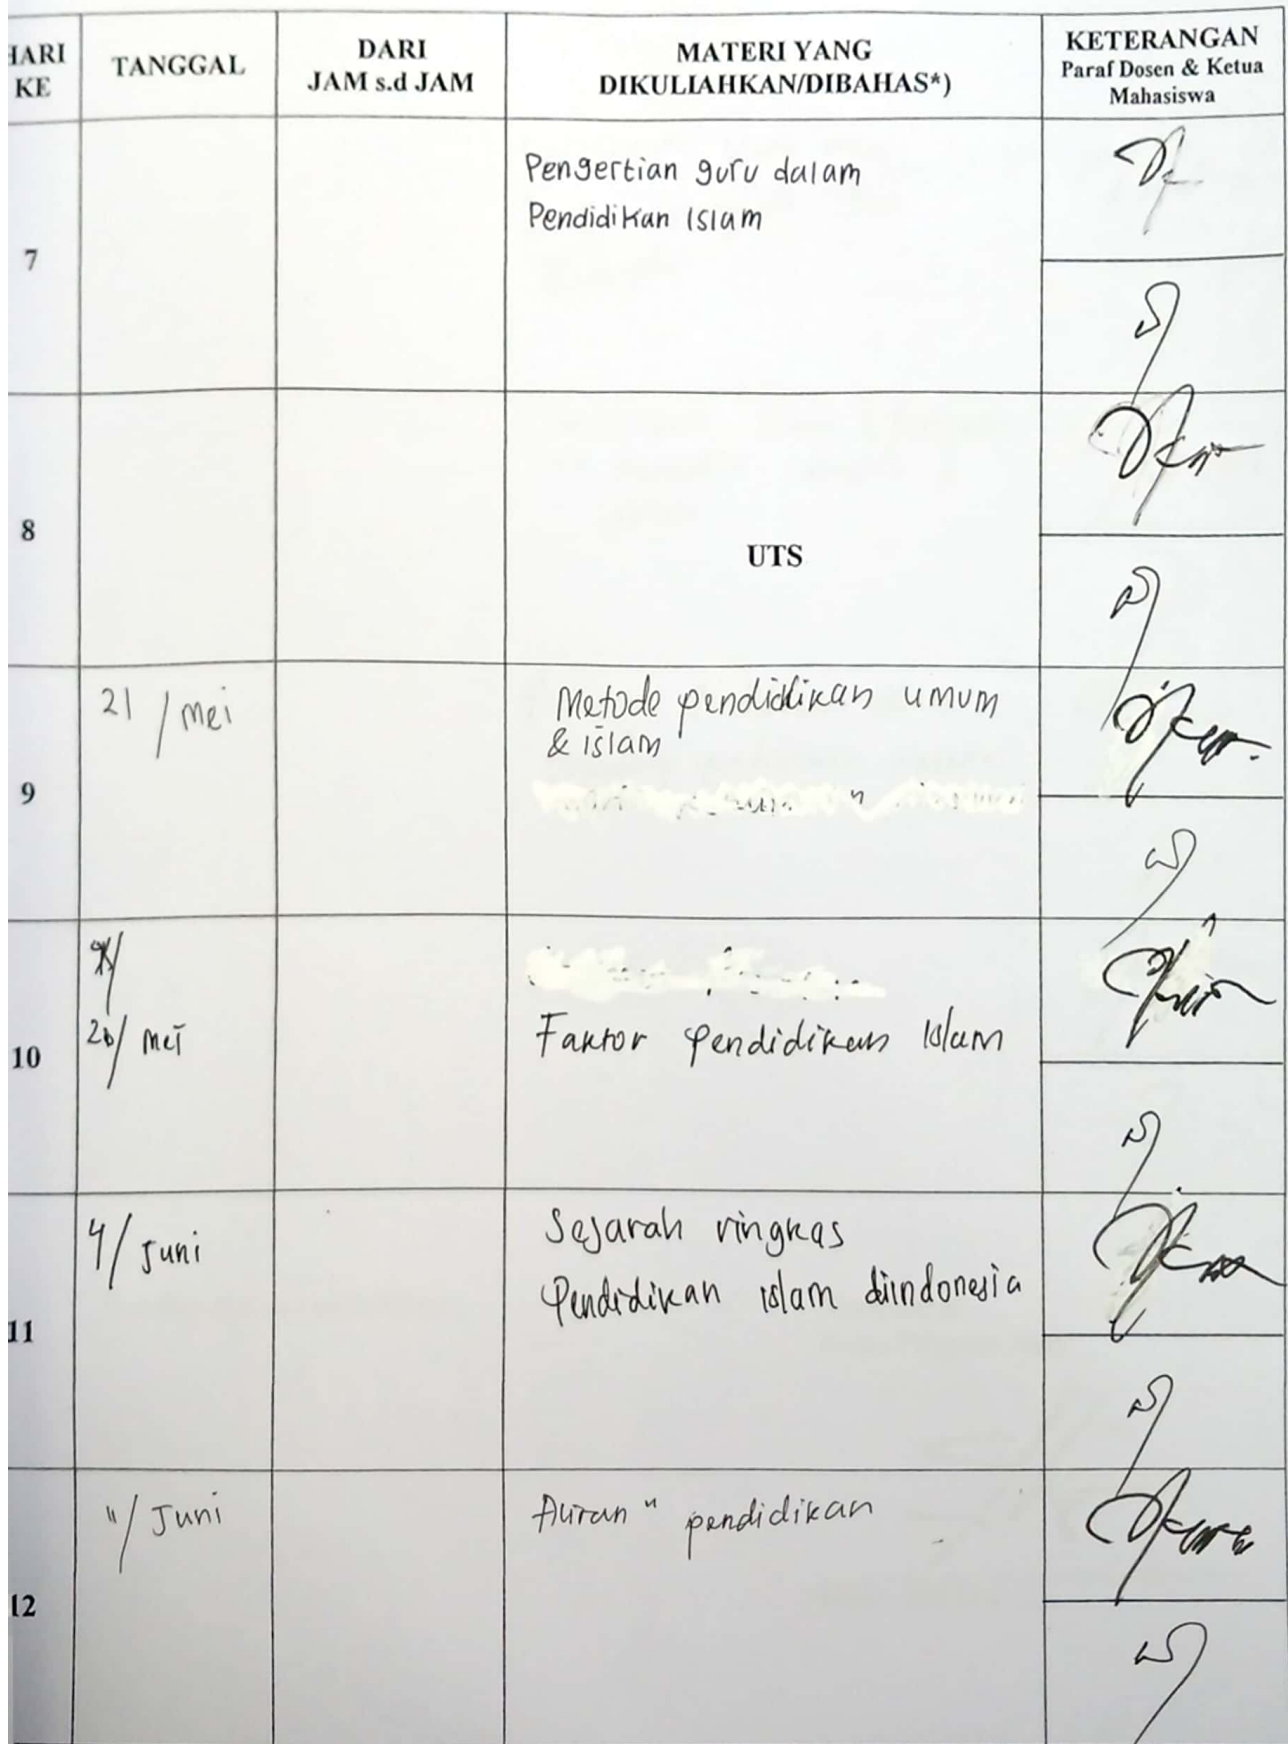 HARI KE
TANGGAL
DARI
JAM s.d JAM
MATERI YANG
DIKULIAHKAN/DIBAHAS*)
KETERANGAN
Paraf Dosen & Ketua
Mahasiswa
7
Pengertian guru dalam
Pendidikan Islam
8
UTS
9
21 / Mei
Metode pendidikan umum
& islam
10
/ Mei
Faktor Pendidikan Islam
11
4/ Juni
Sejarah ringkas
Pendidikan islam diindonesia
12
11/ Juni
Aliran " pendidikan